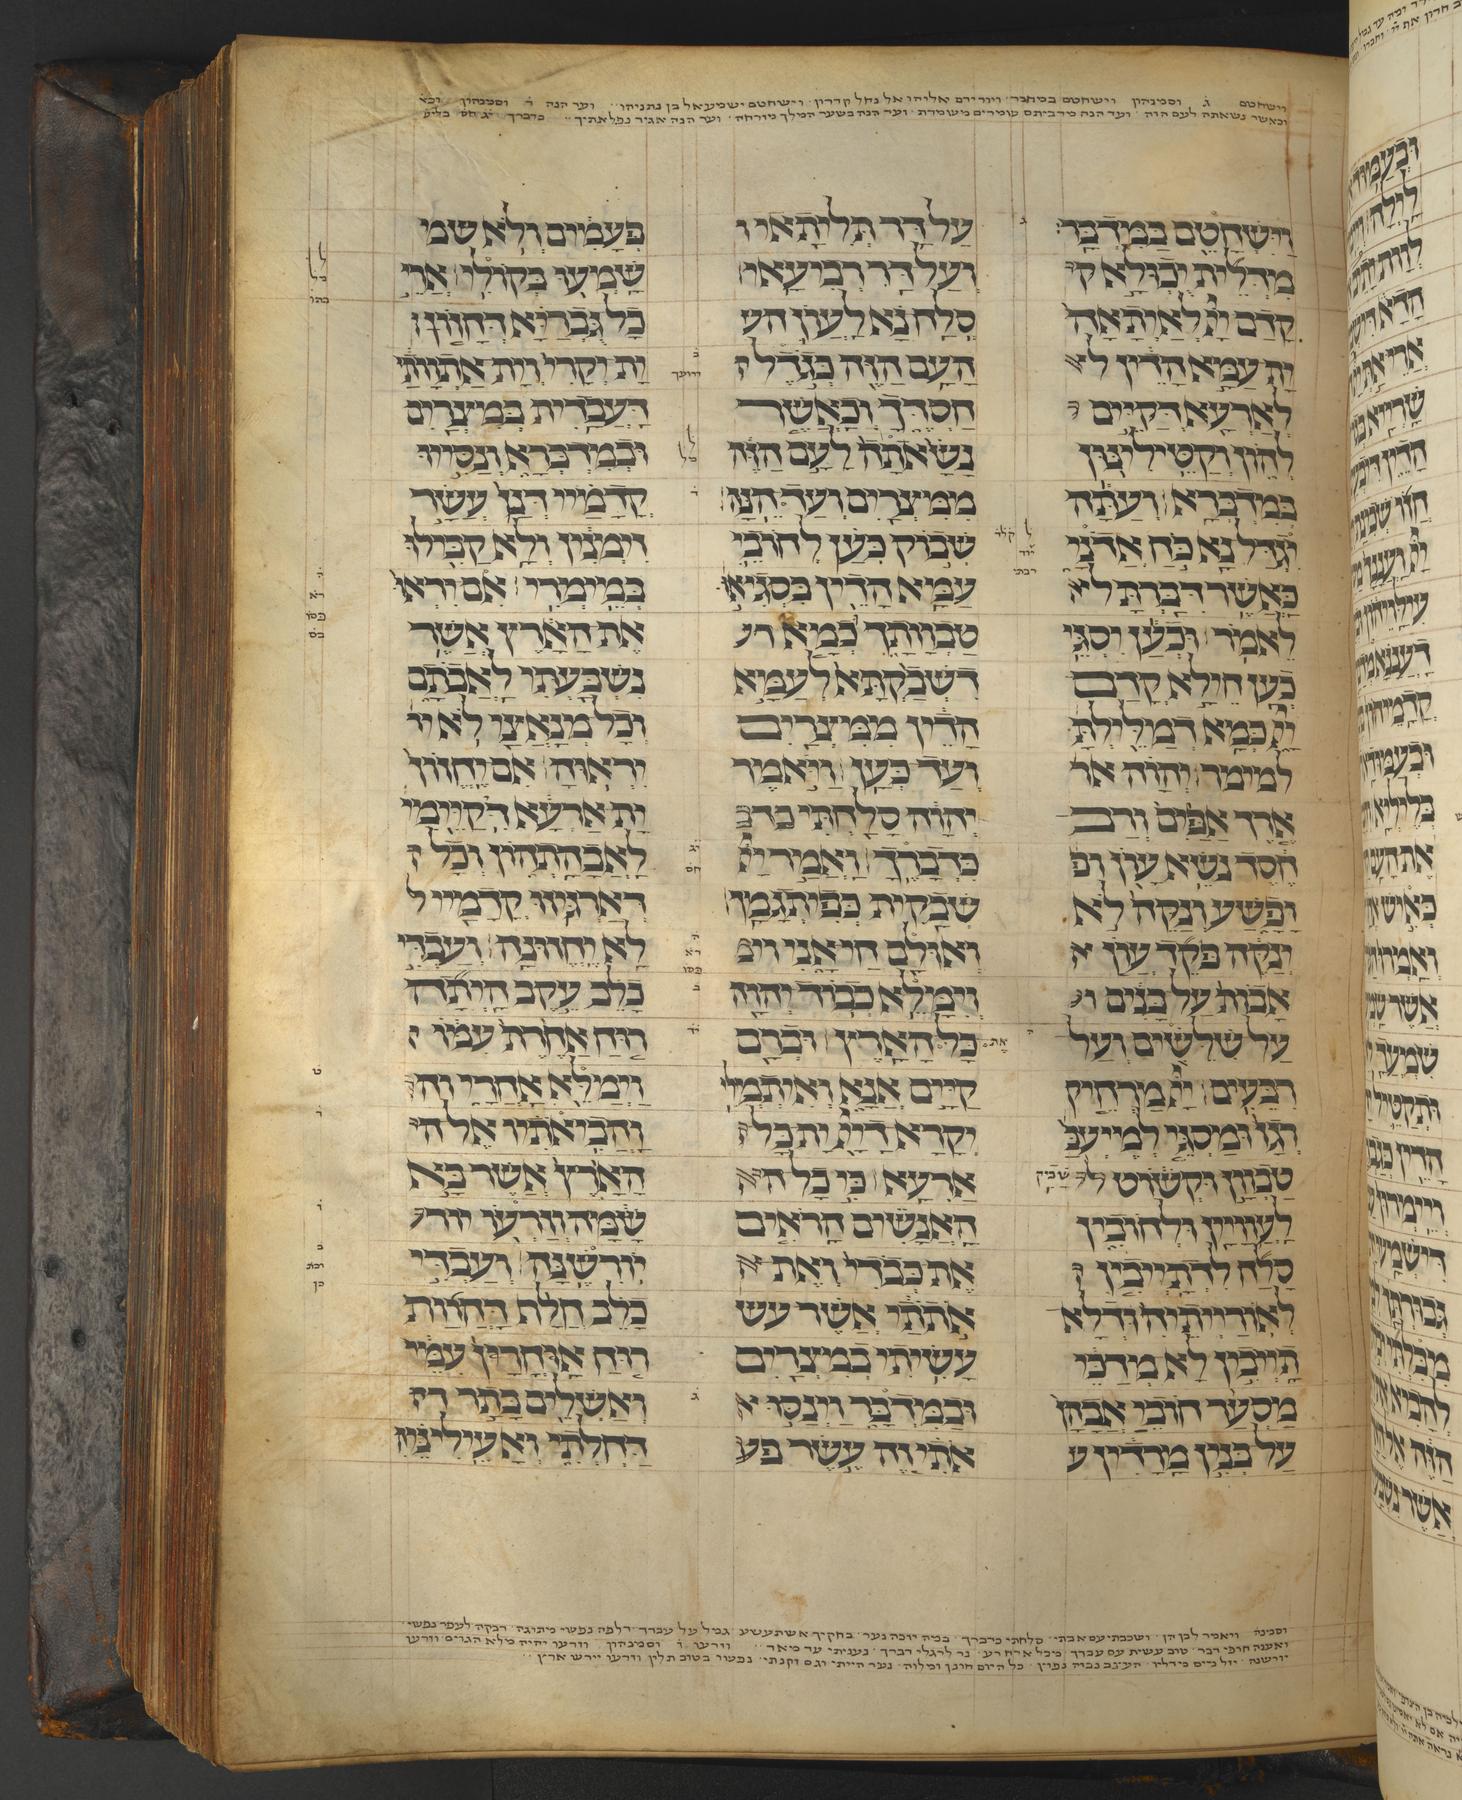 וישחטם ג וסמנהון וישחטם במדבר ויורידם אליהו אל נחל קדרון וישחטם ישמעאל בן נתניהו ועד הנה ד וסמנהון וכא
וכאשר נשאתה לעם הזה ועד הנה מרביתם שומרים משמרת ועד הנה בשער המלך מזרחה ועד הנה אגיד נפלאתיך כדברך יג חס בליש
וישחטם במדבר
מדלית יכולא ק
קדם ייי לאיתאה
ית עמא הדין ל
לארעא דקיים
להון וקטילינון
במדברא ועתה
יגדל נא כח אדני
כאשר דברת ל
לאמר וכען יסגי
כען חילא קדם
ייי כמא דמלילת
למימר יהוה אר
ארך אפים ורב
חסד נשא עון ופ
ופשע ונקה לא
ינקה פקד עון א
אבות על בנים וע
על שלשים ועל
רבעים ייי מרחיק
רגז ומסגי למיעבד
טבוון וקשוט שביק
לעוין ולחובין
סלח לדתייבין
לאוריתיה ודלא
תייבין לא מזכי
מסער חובי אבהן
על בנין מרדין ע
על דר תליתאי ו
ועל דר רביעאי
סלח נא לעון הע
העם הזה כגדל
חסדך וכאשר
נשאתה לעם הזה
ממצרים ועד הנה
שבוק כען לחובי
עמא הדין כסגיא
טבוותך כמא
דשבקתא לעמא
הדין ממצרים
ועד כען ויאמר
יהוה סלחתי כדב
כדברך ואמר ייי
שבקית כפיתגמך
ואולם חי אני וימ
וימלא כבוד יהוה
את כל הארץ וברם
קיים אנא ואיתמלי
יקרא דייי ית כל
ארעא כי כל ה
האנשים הראים
את כבדי ואת א
אתתי אשר עש
עשיתי במצרים
ובמדבר וינסו א
אתי זה עשר פע
פעמים ולא שמ
שמעו בקולי ארי
כל גבריא דחזון
ית יקרי וית אתותי
דעבדית במצרים
ובמדברא ונסיו
קדמי דנן עשר
זימנין ולא קבילו
במימרי אם יראו
את הארץ אשר
נשבעתי לאבתם
וכל מנאצי לא י
יראוה אם יחזון
ית ארעא דקיימי
לאבהתהון וכל
דארגיזו קדמי ל
לא יחזונה ועבדי
כלב עקב היתה
רוח אחרת עמו
וימלא אחרי וה
והביאתיו אל ה
הארץ אשר בא
שמה וזרעו יור
יורשנה ועבדי
כלב חלף דהות
רוח אוחרן עמי
ואשלים בתר ד
דחלתי ואעילניה
וסמנה ויאמר לבן הן ושכבתי עם אבתי סלחתי כדברך במה יזכה נער בחקיך אשתעשע גמל על עבדך דלפה נפשי מתוגה דבקה לעפר נפשי
ואענה חרפי דבר טוב עשית עם עבדך מכל ארח רע נר לרגלי דברך נעניתי עד מאד וזרעו ו וסמנהון וזרעו יהיה מלא הגוים וזרעו
יורשנה יזל מים מדליו העצב נבזה נפוץ כל היום חונן ומלוה נער הייתי וגם זקנתי נפשו בטוב תלין וזרעו יירש ארץ